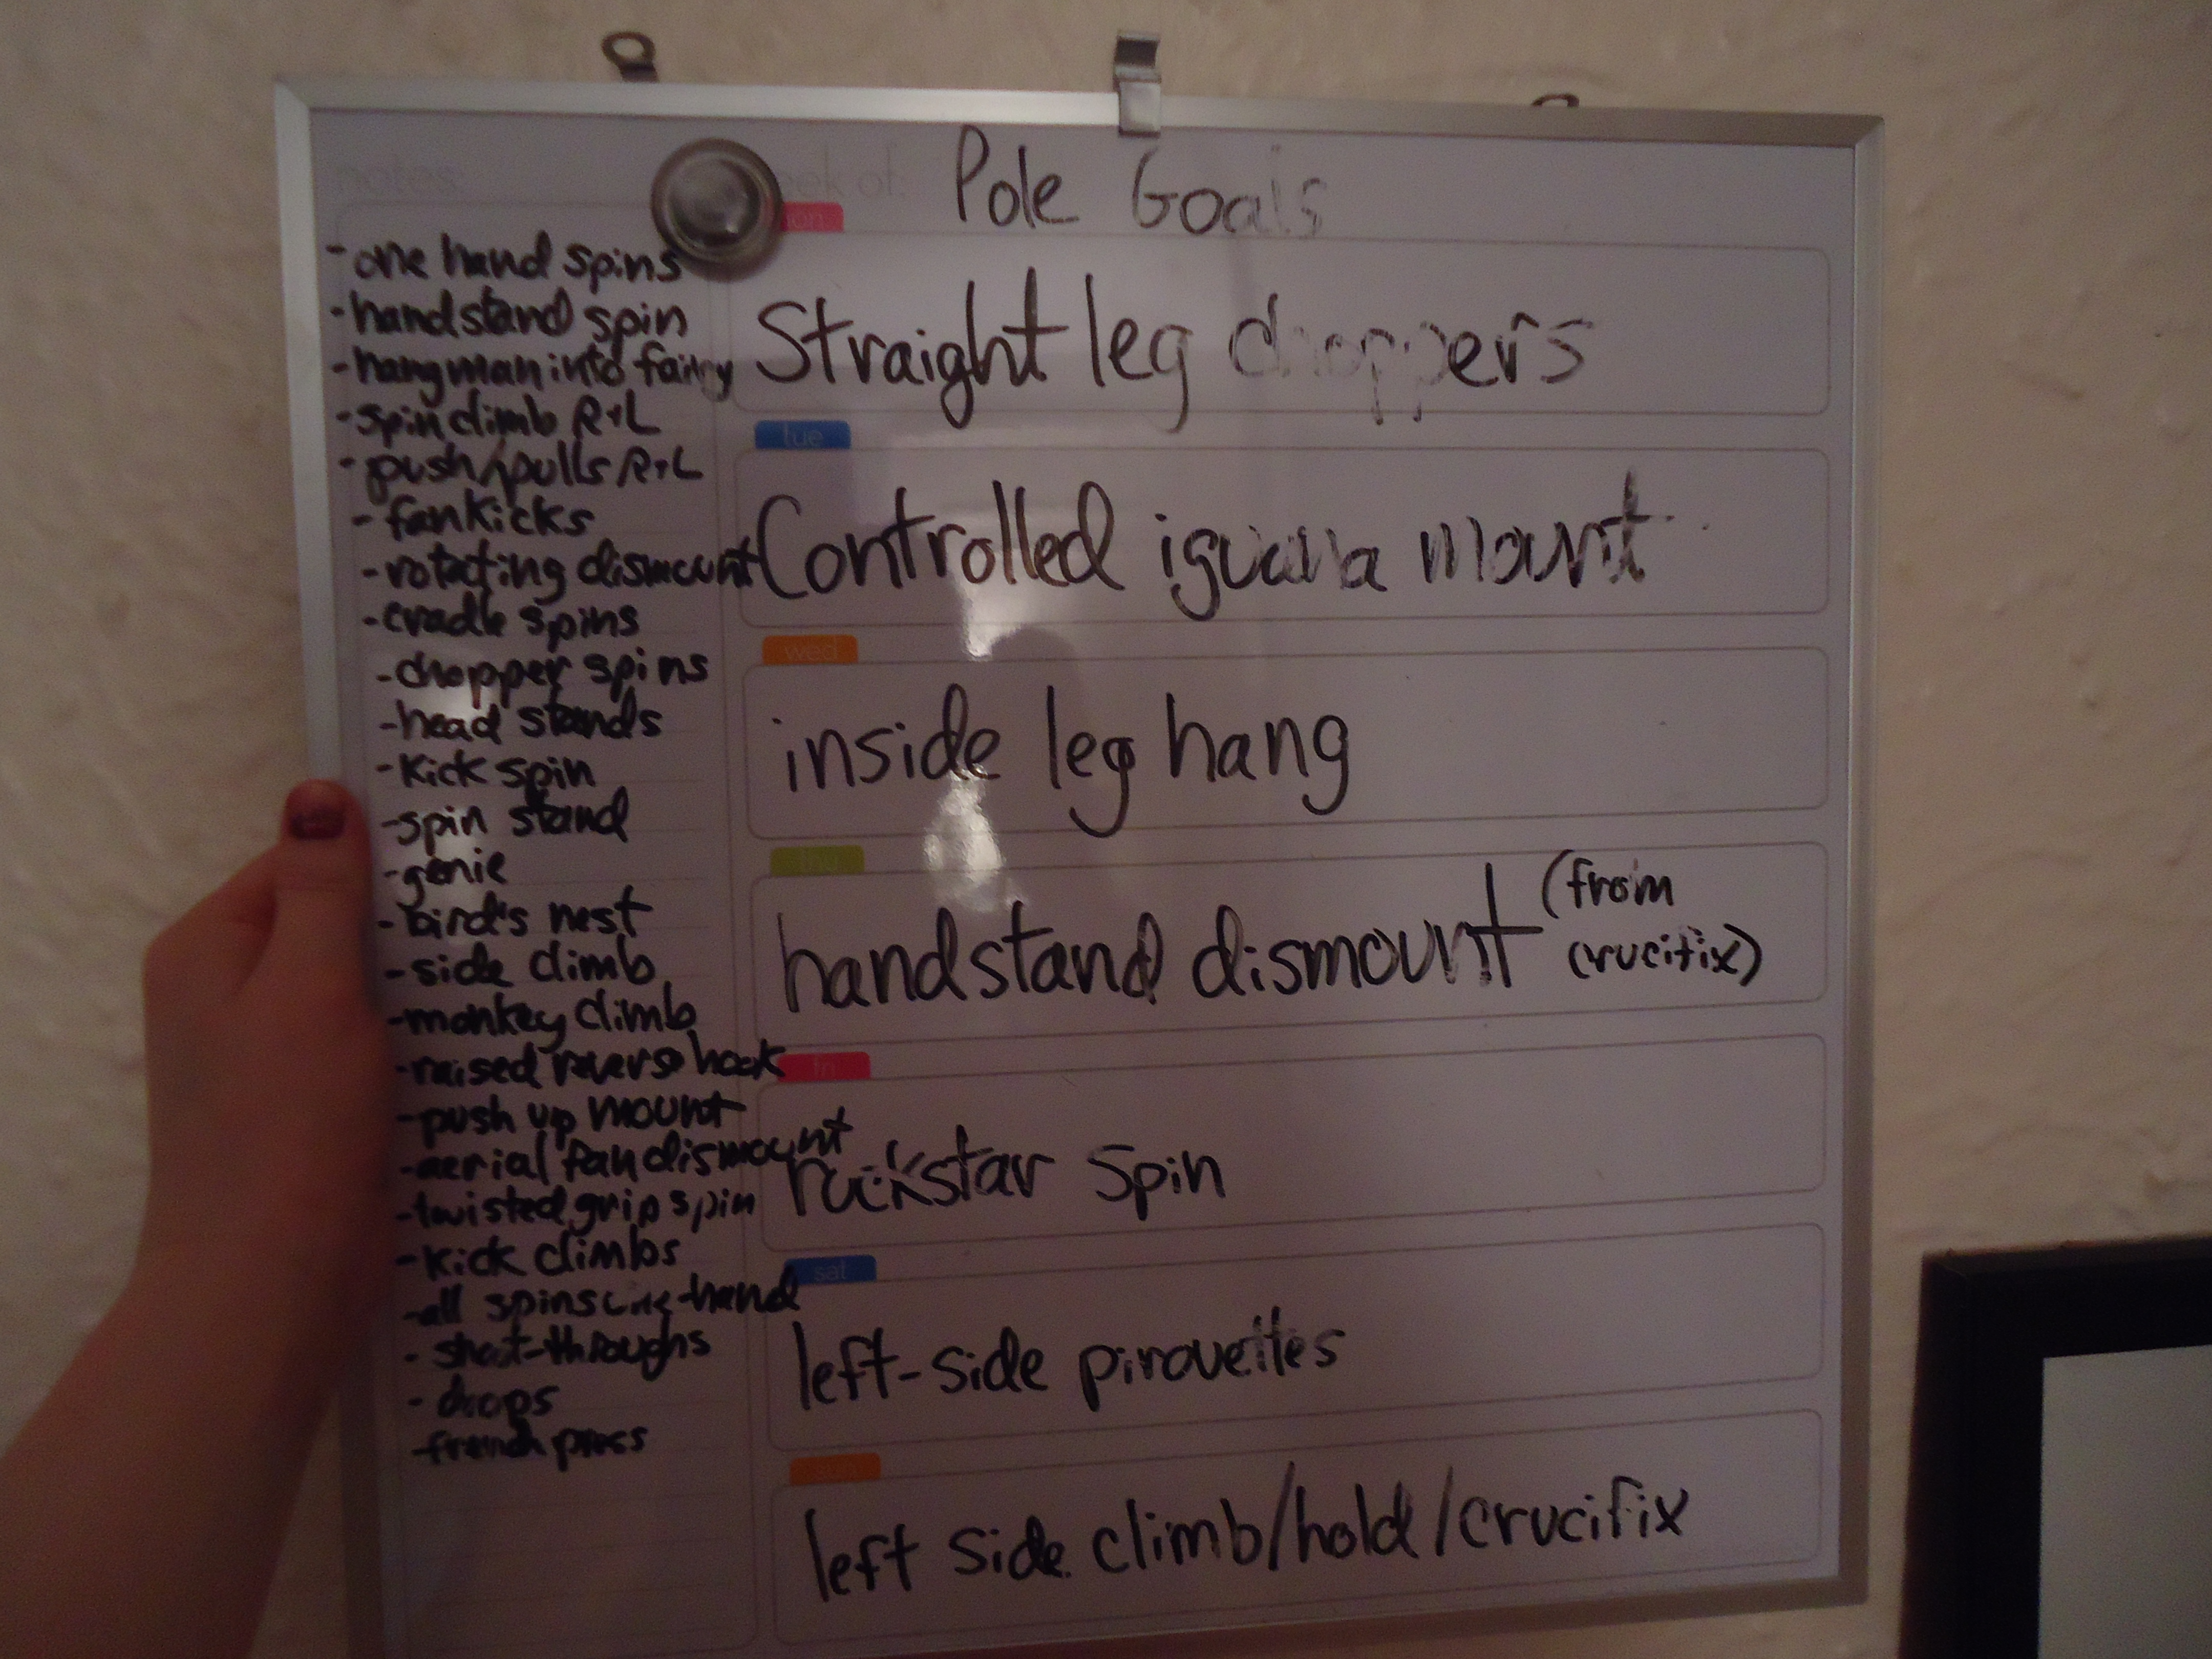 notes:
week of:
Pole Goals
- one hand spins
- handstand spin
- hangman into fairy
- spin climb R+L
- push/pulls R+L
- fankicks
- rotating dismount
- cradle spins
- chopper spins
- head stands
- kick spin
- spin stand
- genie
- bird's nest
- side climb
- monkey climb
- raised reverse hook
- push up mount
- aerial fan dismount
- twisted grip spin
- kick climbs
- all spins one-hand
- shoot-throughs
- drops
- french press
mon
Straight leg choppers
tue
Controlled iguana mount
wed
inside leg hang
thu
handstand dismount (from
crucifix)
fri
rockstar spin
sat
left-side pirouettes
left side climb/hold/crucifix